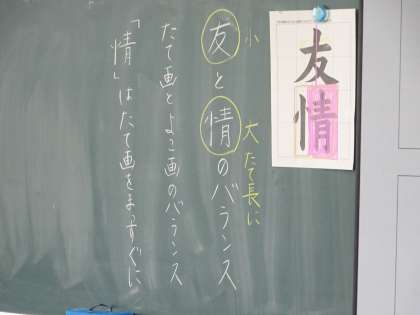 友情
小
大 たて長に
友と情のバランス
たて画とよこ画のバランス
「情」はたて画をまっすぐに